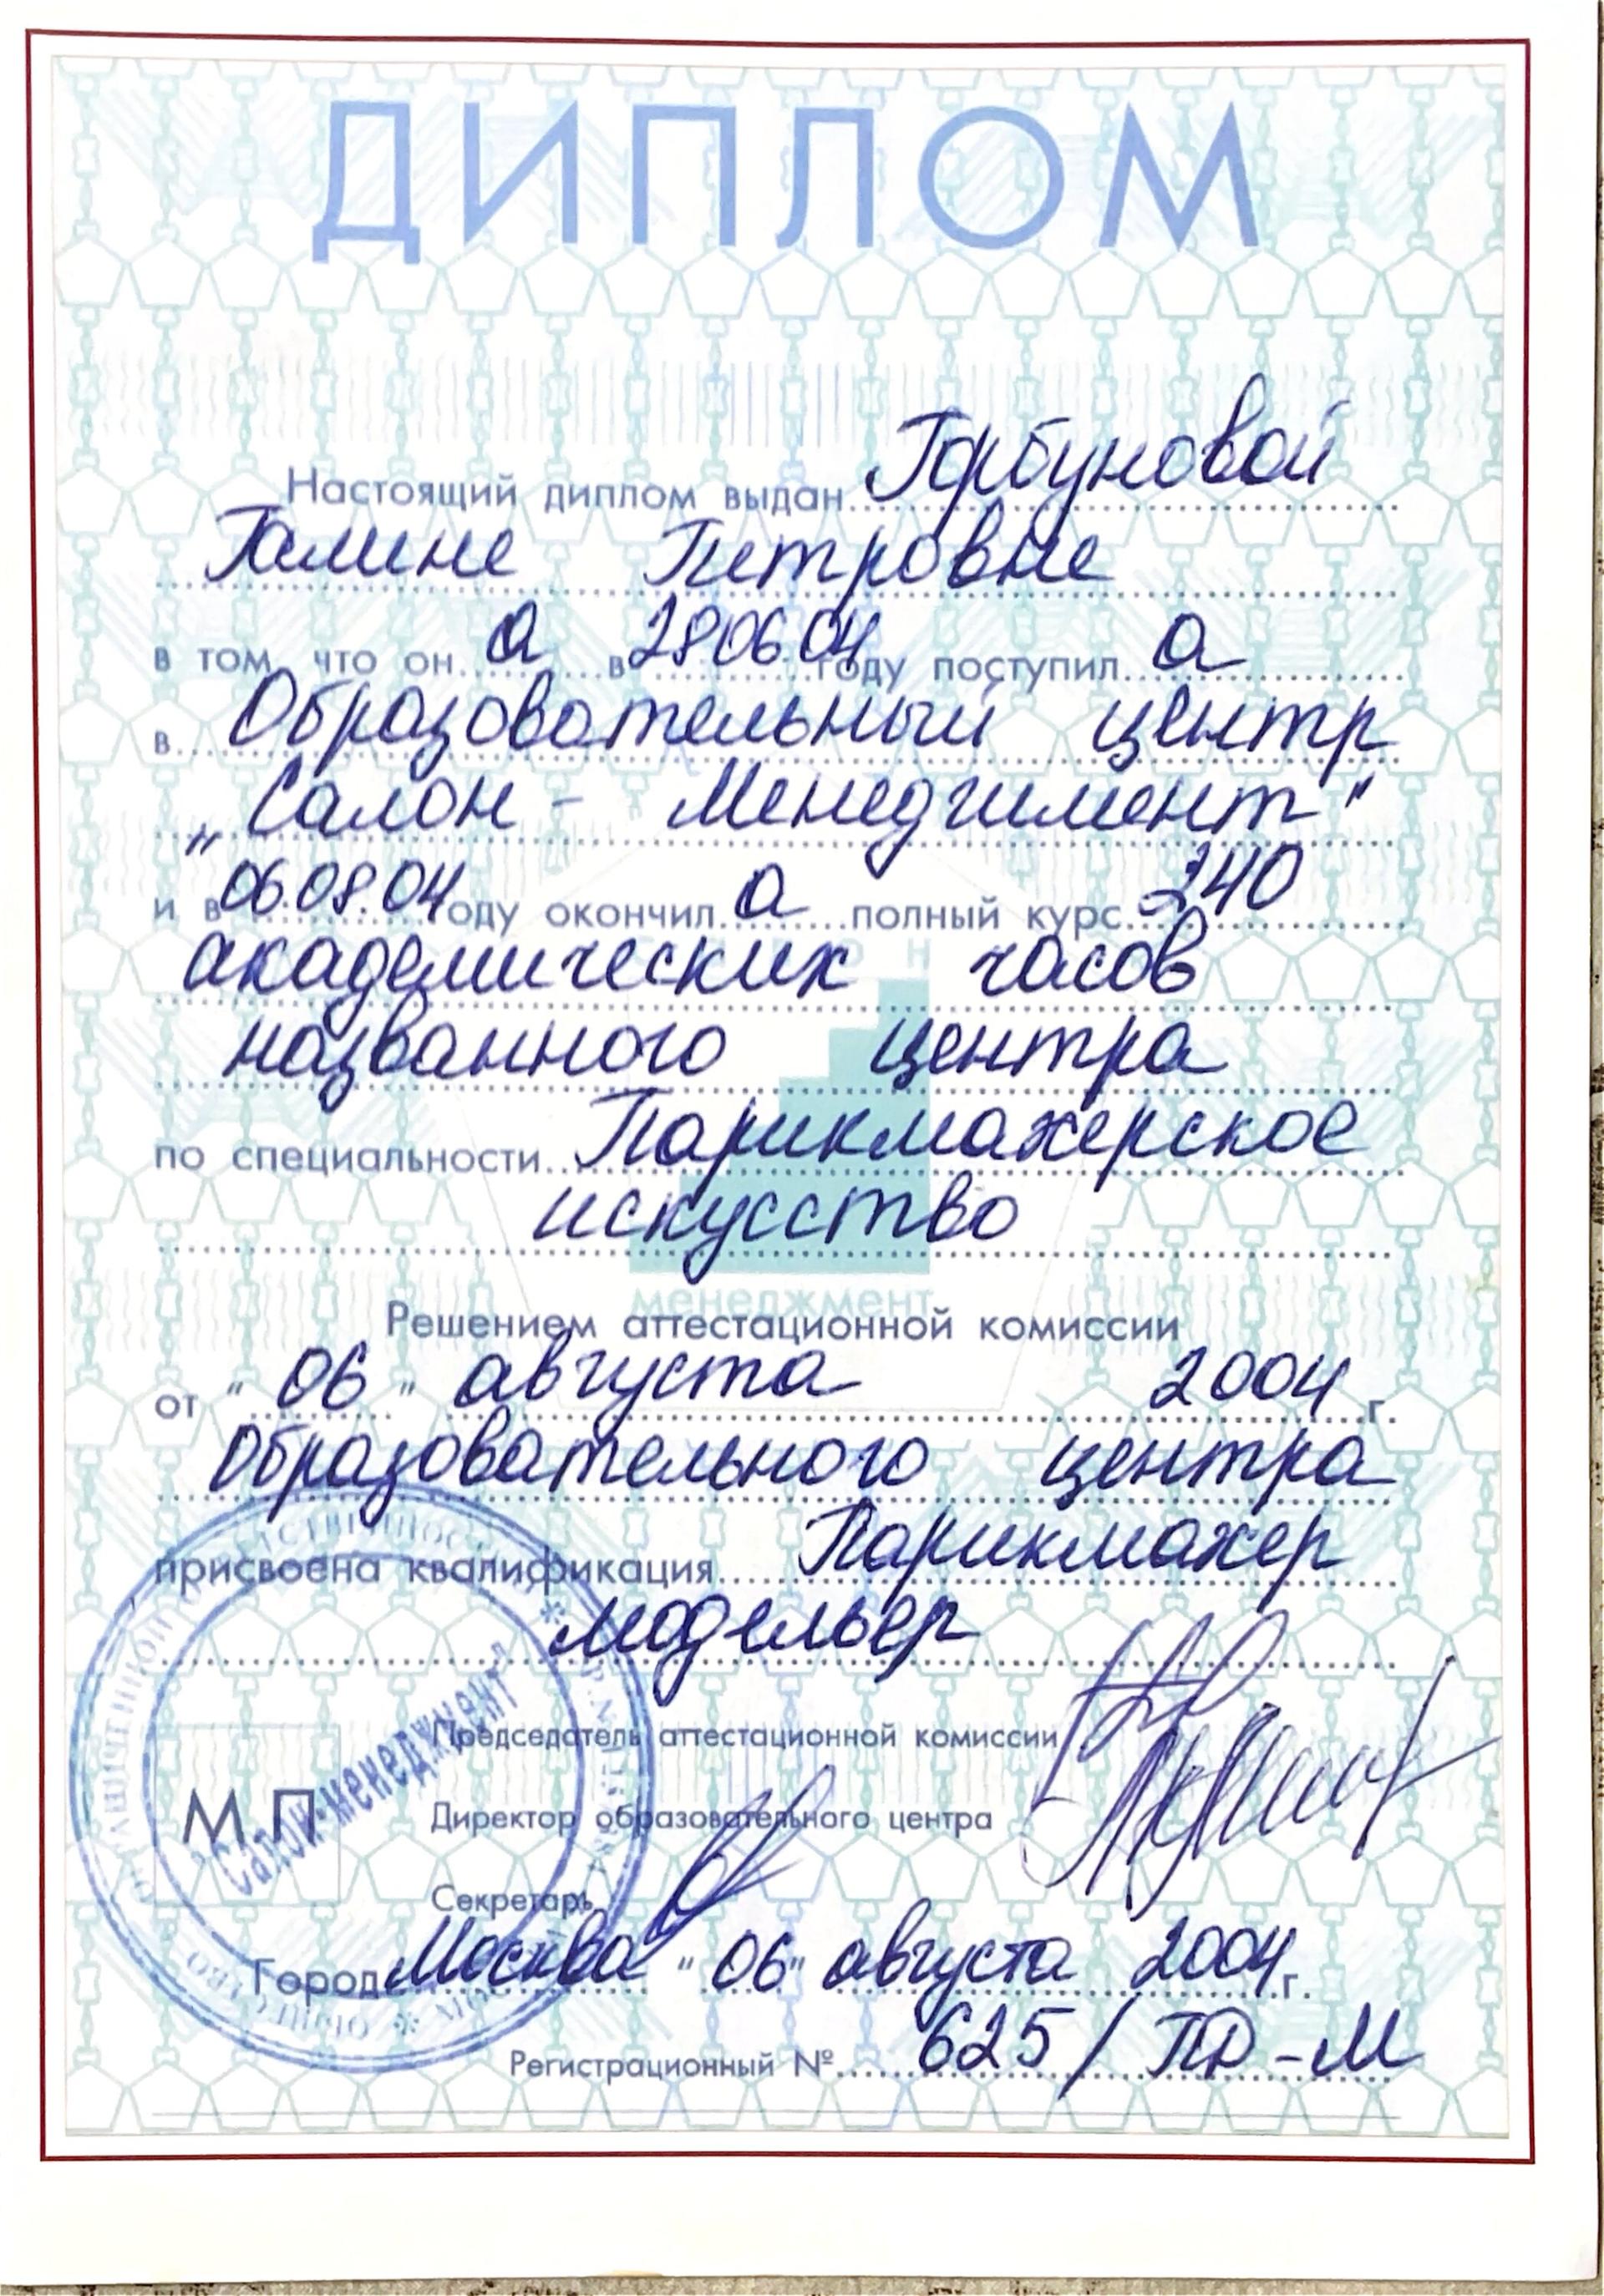 ДИПЛОМ
Настоящий диплом выдан Горбуновой
Галине Петровне
в том, что он а в 280604 году поступил а
в Образовательный центр
„Салон - Менеджмент"
и в 06.08.04 году окончил а полный курс 240
академических часов
названного центра
по специальности Парикмахерское
искусство
менеджмент
Решением аттестационной комиссии
от "06" августа 2004 г.
Образовательного центра
присвоена квалификация Парикмахер
модельер
Председатель аттестационной комиссии
М П
"Салон-менеджмент"
Директор образовательного центра
Секретарь
Город Москва "06" августа 2004 г.
Регистрационный № 625/ПД-М